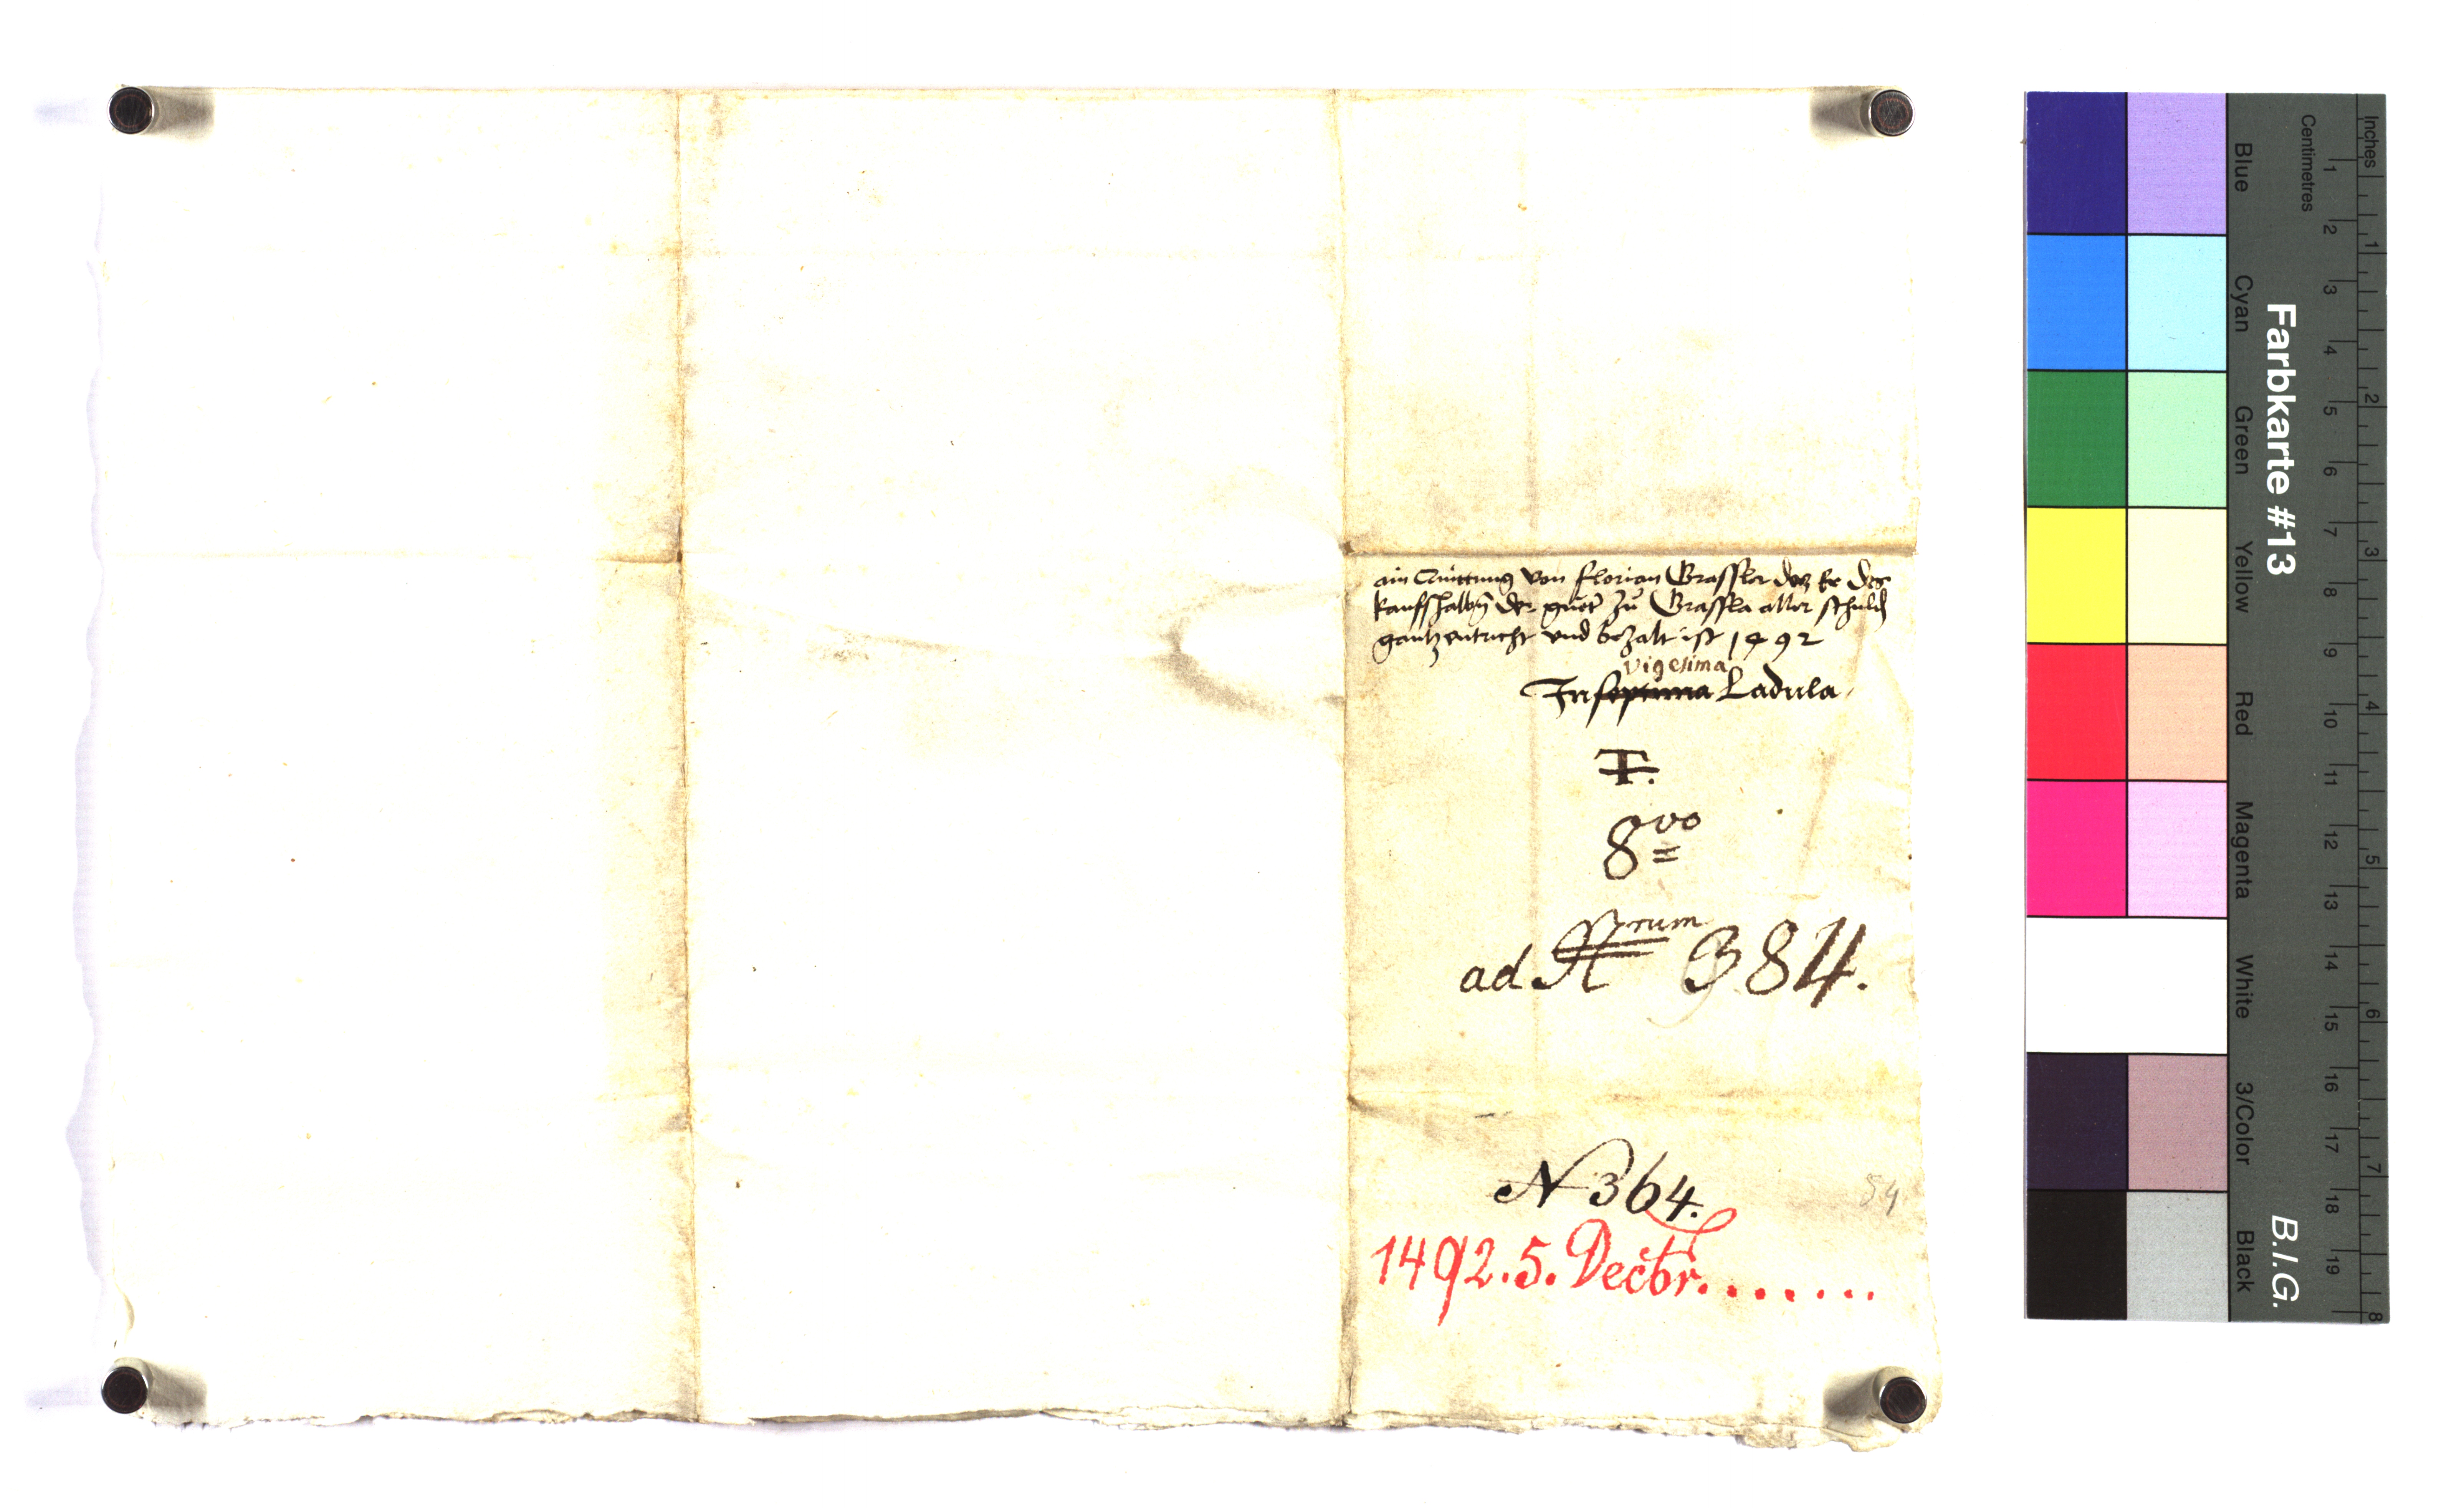 ain Quittung von Florian Grassler das er des
kauffhalbn der guet zu Grassla aller schuld
gantz entricht und bezalt ist 1492
vigesima
In septima Ladula
T.
8vo
ad Nrum 384.
N 364.
54
1492. 5. Decbr. . . . . . .
Inches
Centimetres
1 2 3 4 5 6 7 8 9 10 11 12 13 14 15 16 17 18 19
1 2 3 4 5 6 7 8
Farbkarte #13
B.I.G.
Blue
Cyan
Green
Yellow
Red
Magenta
White
3/Color
Black